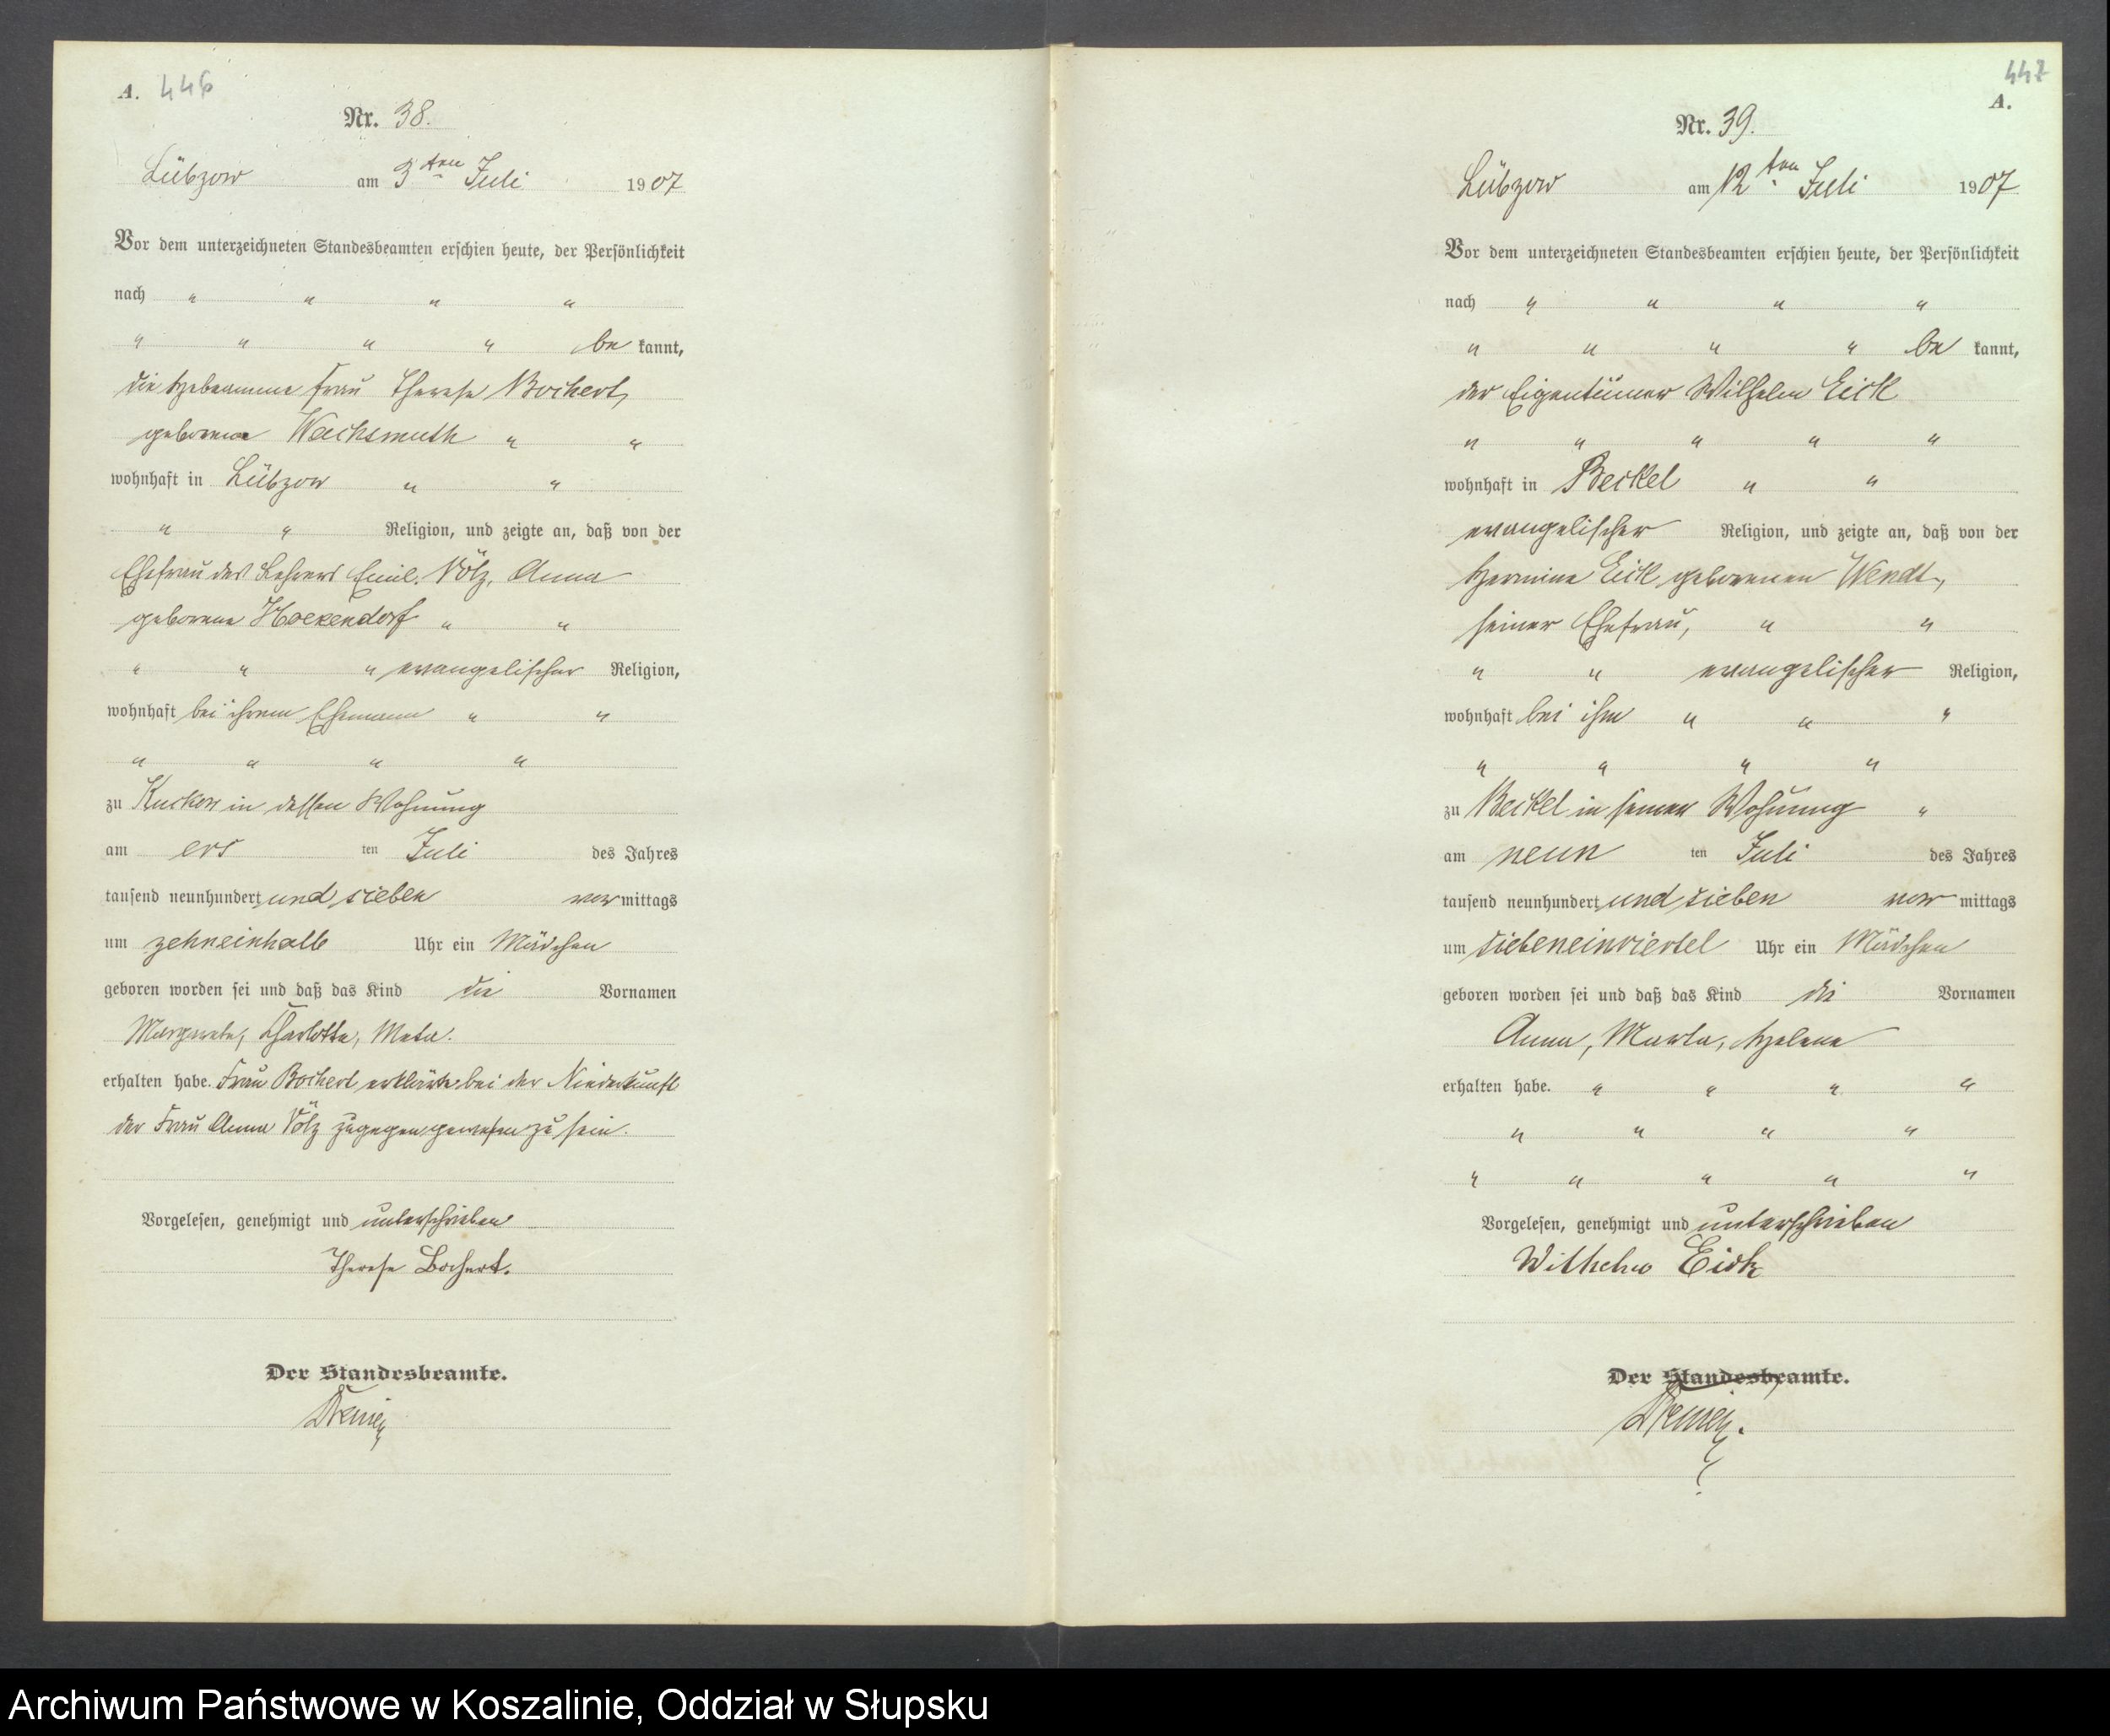 A. 446
Nr. 38.
Lübzow am 3ten Juli 1907
Vor dem unterzeichneten Standesbeamten erschien heute, der Persönlichkeit
nach " " " "
" " " " be kannt,
die Hebeamme Frau Therese Bochert,
geborene Wachsmuth " "
wohnhaft in Lübzow " "
" " Religion, und zeigte an, daß von der
Ehefrau des Lehrers Emil Völz, Anna
geborene Hoekendorf " "
" " " evangelischer Religion,
wohnhaft bei ihrem Ehemann " "
" " " "
zu Kuckow in dessen Wohnung
am ers ten Juli des Jahres
tausend neunhundert und sieben vor mittags
um zehneinhalb Uhr ein Mädchen
geboren worden sei und daß das Kind die Vornamen
Margarete, Charlotte, Meta.
erhalten habe. Frau Bochert erklärte bei der Niederkunft
der Frau Anna Völz zugegen gewesen zu sein.
Vorgelesen, genehmigt und unterschrieben
Therese Bochert.
Der Standesbeamte.
447
A.
Nr. 39.
Lübzow am 12ten Juli 1907
Vor dem unterzeichneten Standesbeamten erschien heute, der Persönlichkeit
nach " " " "
" " " " be kannt,
der Eigentümer Wilhelm Eick
" " " " "
wohnhaft in Beckel " "
evangelischer Religion, und zeigte an, daß von der
Hermine Eick geborenen Wendt,
seiner Ehefrau, " "
" " evangelischer Religion,
wohnhaft bei ihm " " "
" " " "
zu Beckel in seiner Wohnung "
am neun ten Juli des Jahres
tausend neunhundert und sieben vor mittags
um siebeneinviertel Uhr ein Mädchen
geboren worden sei und daß das Kind die Vornamen
Anna, Marta, Helene
erhalten habe. " " " "
" " " "
" " " " "
Vorgelesen, genehmigt und unterschrieben
Wilhelm Eick
Der Standesbeamte.
Archiwum Państwowe w Koszalinie, Oddział w Słupsku